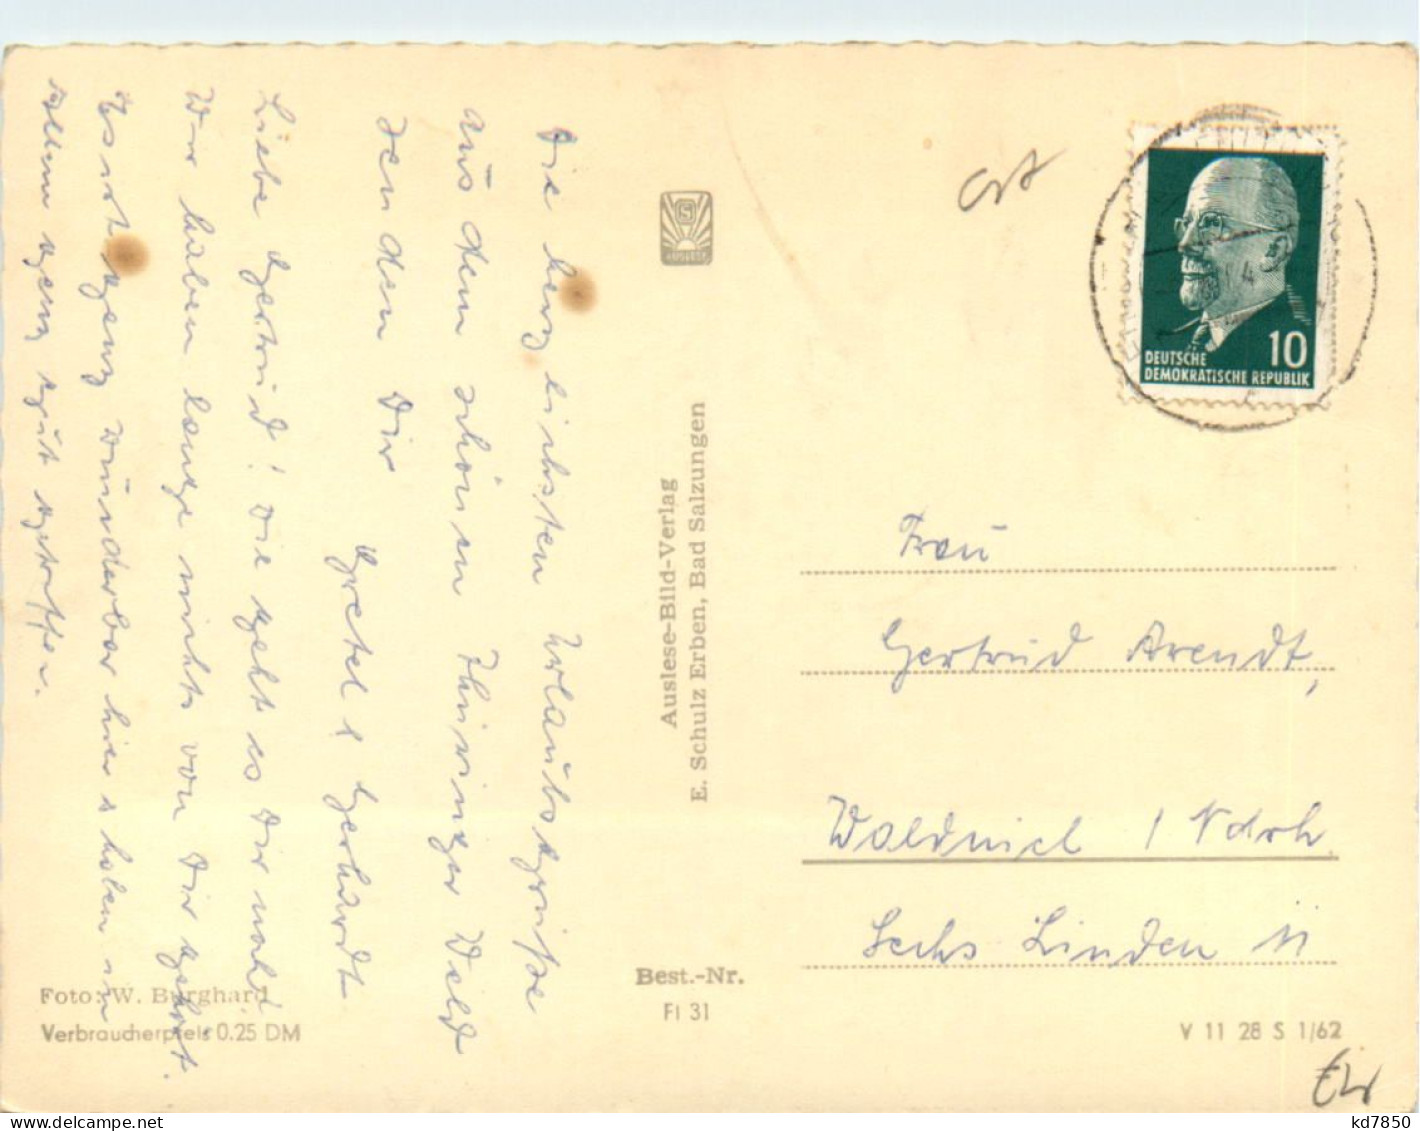 Die herzlichsten Urlaubsgrüße
aus dem schönen Thüringer Wald
senden Dir
Gretel & Gerhardt
Liebe Gertrud! Wie geht es Dir wohl
Wir haben lange nichts von Dir gehört.
Es ist ganz wunderbar hier & haben in
allem ganz gut getroffen.
Foto: W. Burghard
Verbraucherpreis 0.25 DM
Auslese-Bild-Verlag
E. Schulz Erben, Bad Salzungen
Best.-Nr.
Ft 31
DEUTSCHE
DEMOKRATISCHE REPUBLIK
10
Frau
Gertrud Arendt,
Waldniel / Ndrh.
Sechs Linden 11
V 11 28 S 1/62
delcampe.net
kd7850